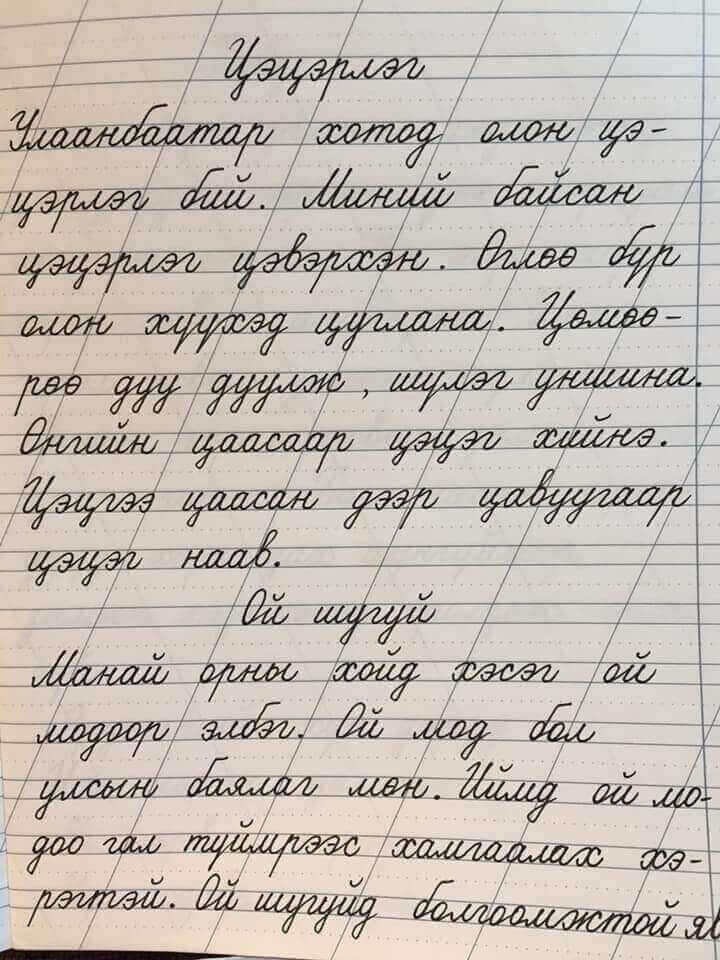 Цэцэрлэг
Улаанбаатар хотод олон цэ-
цэрлэг бий. Миний байсан
цэцэрлэг цэвэрхэн. Өглөө бүр
олон хүүхэд цуглана. Цөмөө-
рөө дуу дуулж, шүлэг уншина.
Өнгийн цаасаар цэцэг хийнэ.
Цэцгээ цаасан дээр цавуугаар
цэцэг наав.
Ой шугуй
Манай орны хойд хэсэг ой
модоор элбэг. Ой мод бол
улсын баялаг мөн. Иймд ой мо-
доо гал түймрээс хамгаалах хэ-
рэгтэй. Ой шугуйд болгоомжтой яв